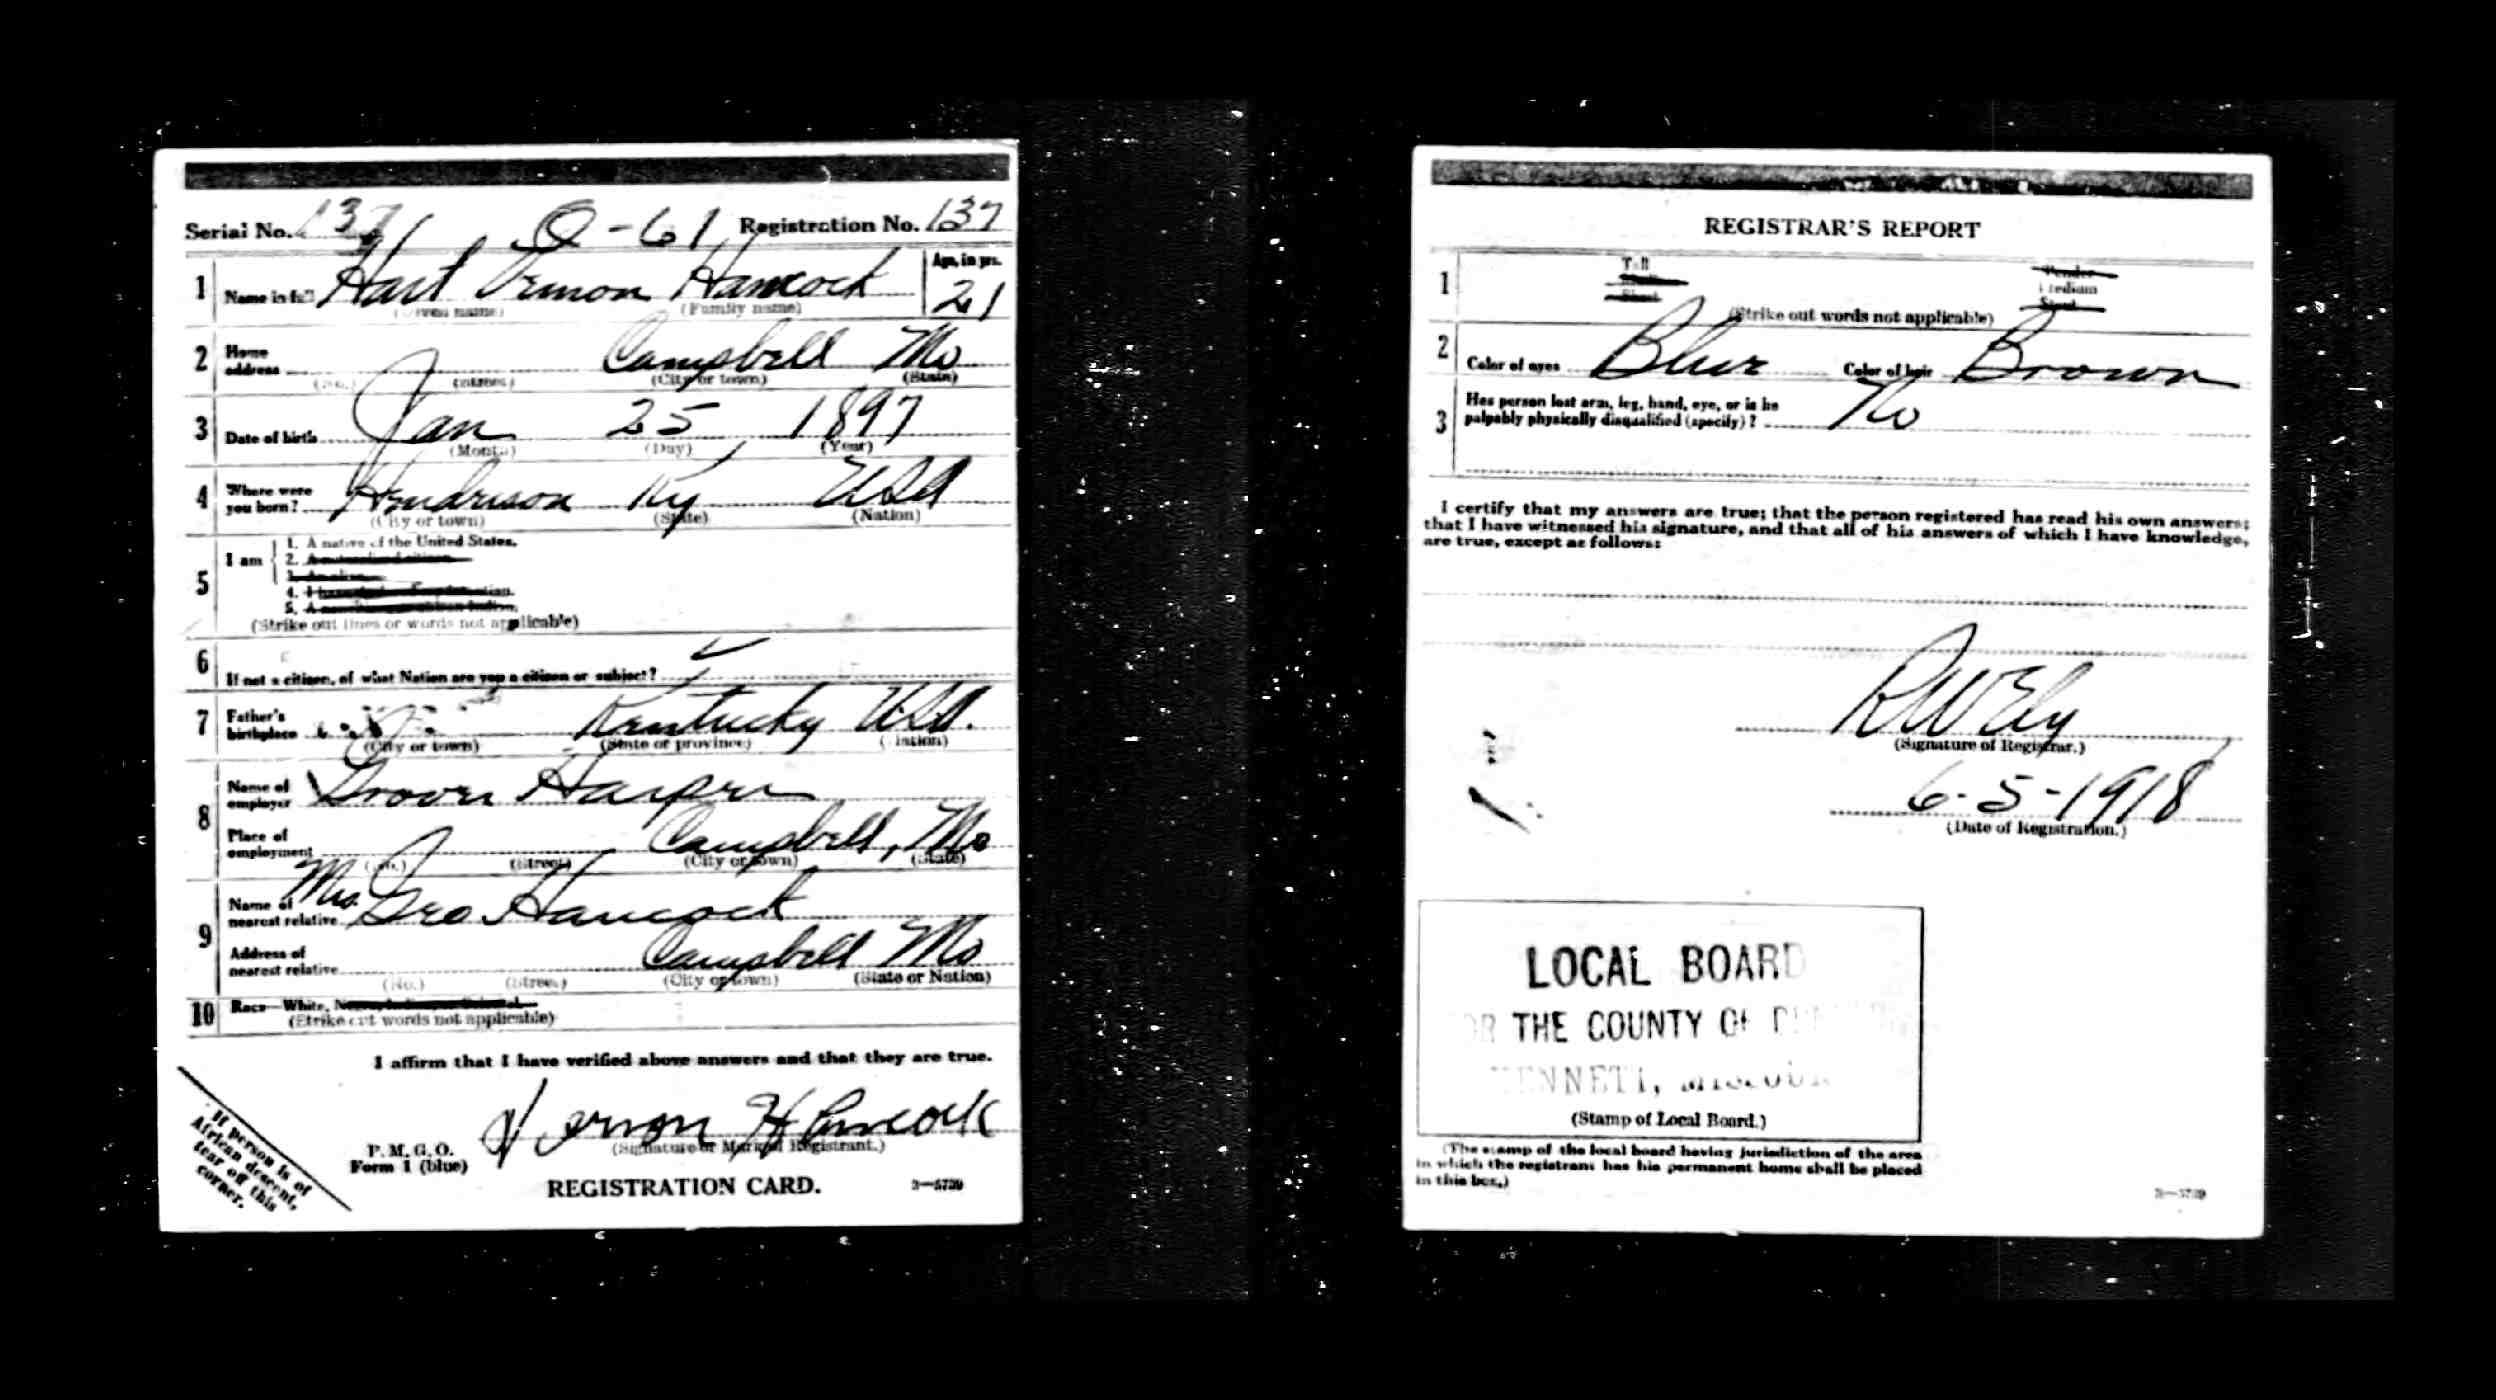 Serial No. 137 O-61 Registration No. 137
1 Name in full Hart Vernon Hancock Age, in yrs. 21
(Given name) (Family name)
2 Home address Campbell Mo
(No.) (Street) (City or town) (State)
3 Date of birth Jan 25 1897
(Month) (Day) (Year)
4 Where were you born? Henderson Ky USA
(City or town) (State) (Nation)
5 I am
1. A native of the United States.
2. A naturalized citizen
3. An alien
4. I
5. A
(Strike out lines or words not applicable)
6 If not a citizen, of what Nation are you a citizen or subject?
7 Father's birthplace Kentucky USA.
(City or town) (State or province) (Nation)
8 Name of employer Grover Harper
Place of employment Campbell, Mo
(No.) (Street) (City or town) (State)
9 Name of nearest relative Mrs. Geo. Hancock
Address of nearest relative Campbell Mo
(No.) (Street) (City or town) (State or Nation)
10 Race—White,
(Strike out words not applicable)
I affirm that I have verified above answers and that they are true.
Vernon Hancock
(Signature or Mark of Registrant.)
P. M. G. O.
Form 1 (blue)
REGISTRATION CARD. 3—5739
If person is of
African descent,
tear off this
corner.
REGISTRAR'S REPORT
1 Tall Slender
Medium Medium
Short Stout
(Strike out words not applicable)
2 Color of eyes Blue Color of hair Brown
3 Has person lost arm, leg, hand, eye, or is he
palpably physically disqualified (specify)? No
I certify that my answers are true; that the person registered has read his own answers;
that I have witnessed his signature, and that all of his answers of which I have knowledge,
are true, except as follows:
RWEly
(Signature of Registrar.)
6-5-1918
(Date of Registration.)
LOCAL BOARD
FOR THE COUNTY OF
KENNETT, MISSOURI
(Stamp of Local Board.)
(The stamp of the local board having jurisdiction of the area
in which the registrant has his permanent home shall be placed
in this box.)
3—5739